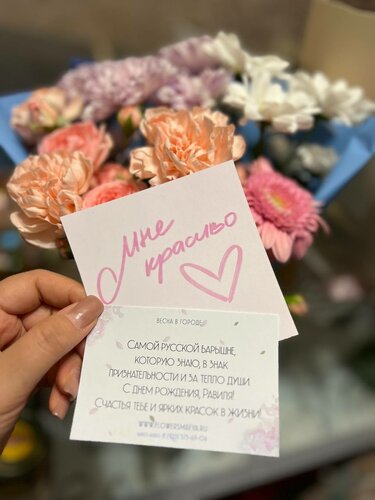 Мне
красиво
ВЕСНА В ГОРОДЕ
САМОЙ РУССКОЙ БАРЫШНЕ,
КОТОРУЮ ЗНАЮ, В ЗНАК
ПРИЗНАТЕЛЬНОСТИ И ЗА ТЕПЛО ДУШИ.
С ДНЕМ РОЖДЕНИЯ, РАВИЛЯ!
СЧАСТЬЯ ТЕБЕ И ЯРКИХ КРАСОК В ЖИЗНИ!
WWW.FLOWERSMAFYA.RU